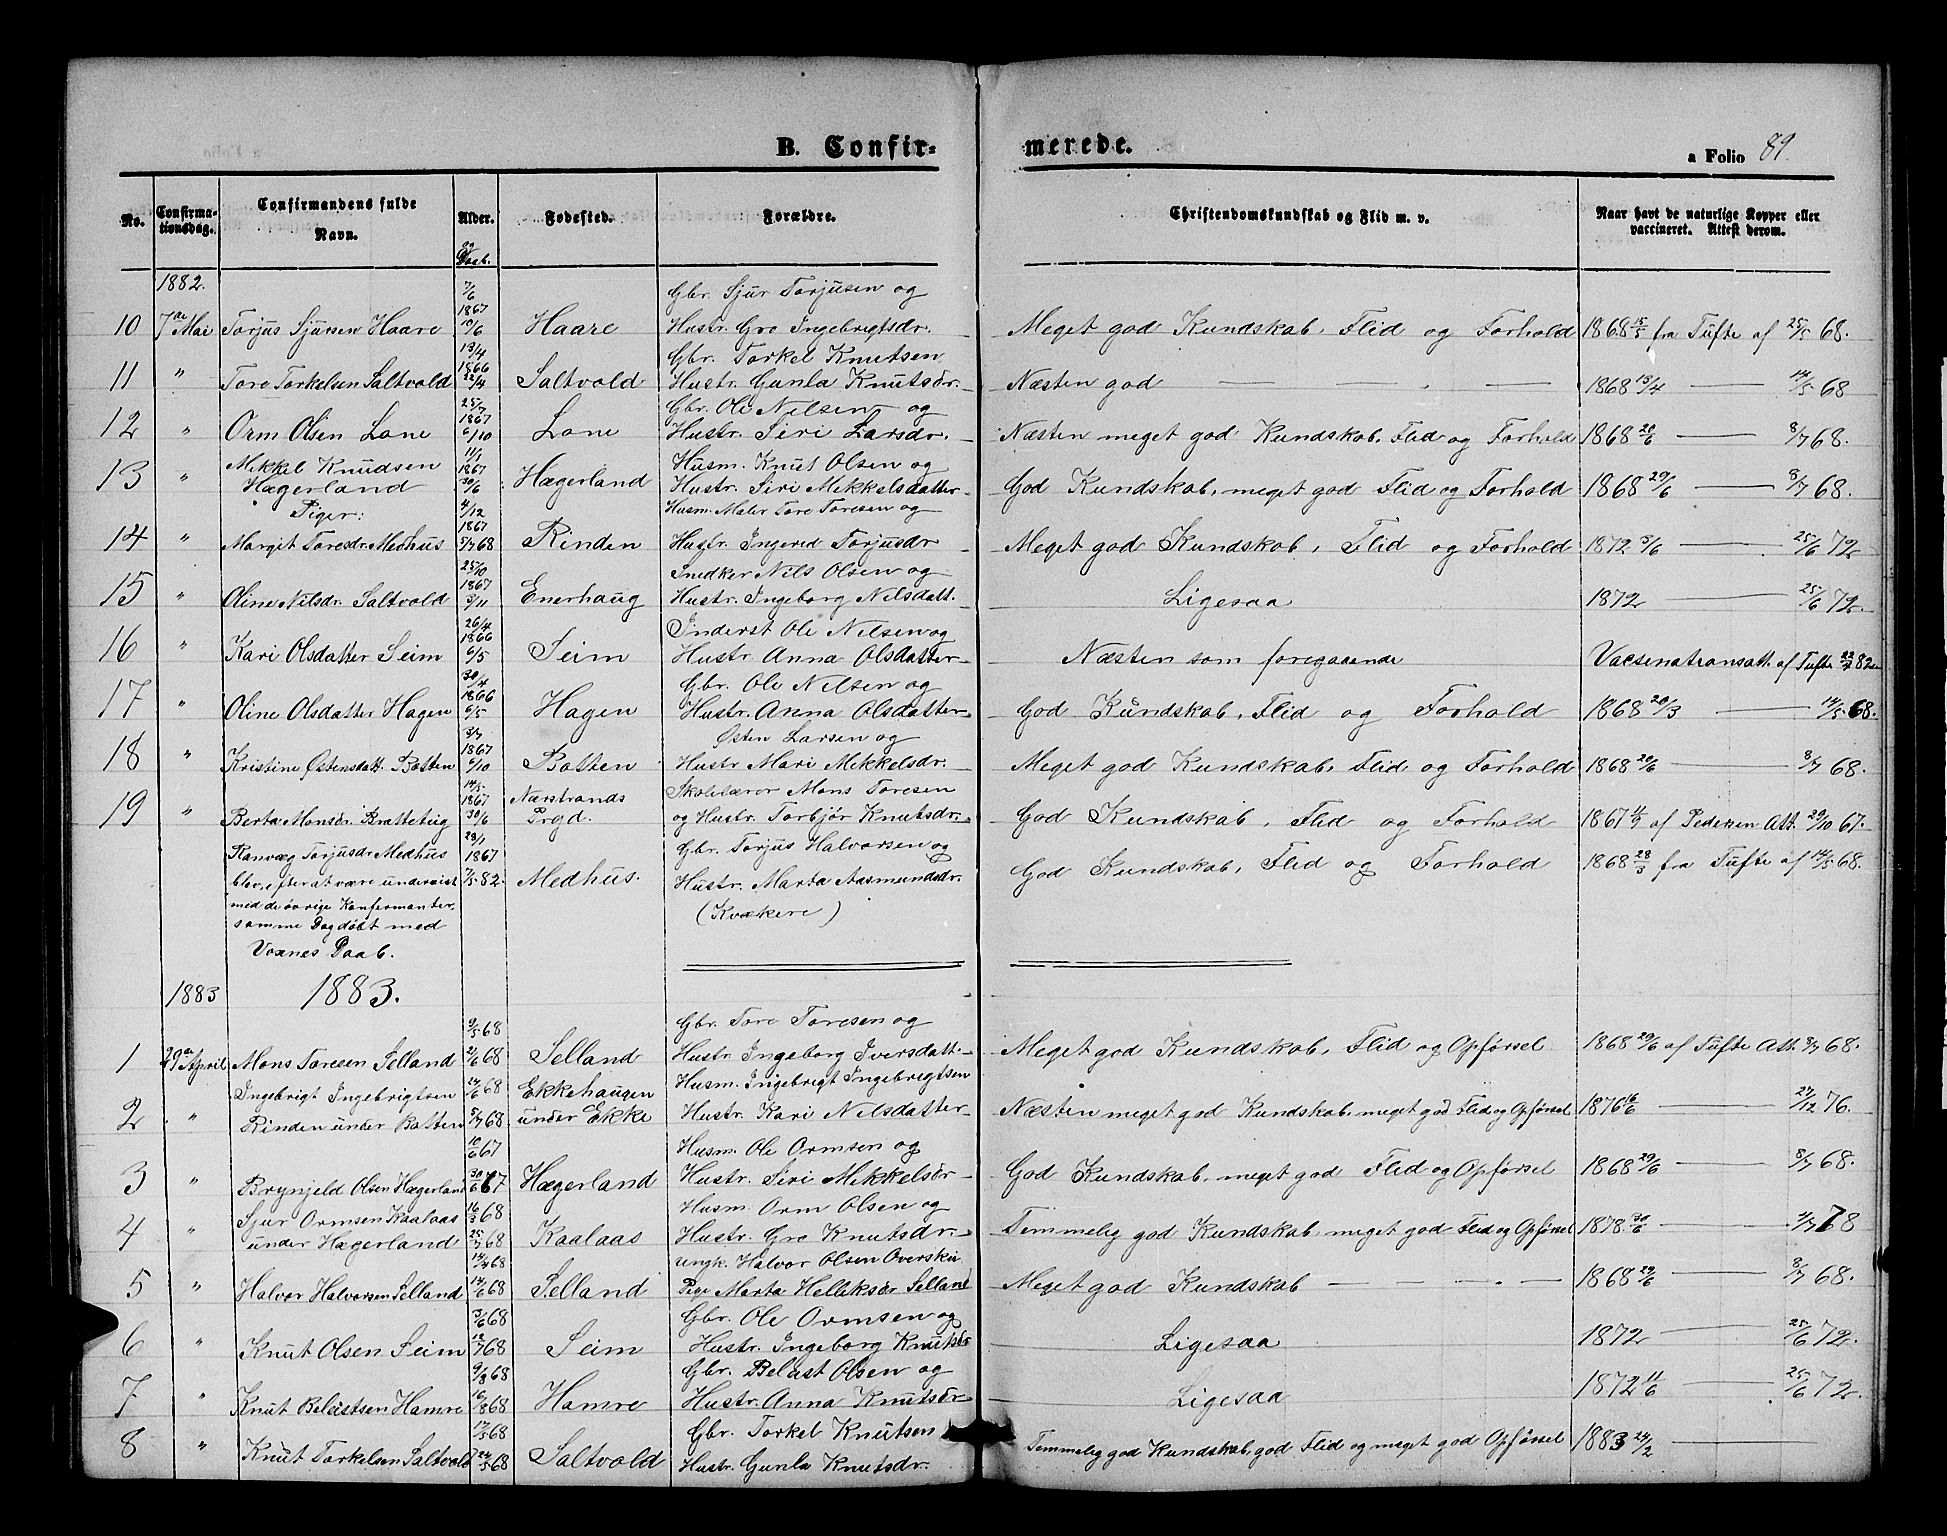 B. Confir-
merede.
a Folio 89.
No. Confirmationsdag. Confirmandens fulde Navn. Alder. og Daab. Fødested. Forældre. Christendomskundskab og Flid m. v. Naar havt de naturlige Kopper eller vaccineret. Attest derom.
1882. 7/6 Gbr. Sjur Torjusen og
10 7de Mai Torjus Sjursen Haare 1867 19/6 Haare Hustr. Gro Ingebrigtsdr. Meget god Kundskab, Flid og Forhold 1868 15/5 fra Tufte af 25/5 68.
13/4 Gbr. Torkel Knutsen
11 " Tore Torkelsen Saltvold 1866 22/4 Saltvold Hustr. Gunla Knutsdr. Næsten god — — — — 1868 13/4 — 14/5 68
25/7 Gbr. Ole Nilsen og
12 " Orm Olsen Lone 1867 6/10 Lone Hustr. Siri Larsdr. Næsten meget god Kundskab, Flid og Forhold 1868 20/6 — 8/7 68.
Mikkel Knudsen Husm. Knut Olsen og
13 " Hægerland 1867 30/6 Hægerland Hustr. Siri Mikkelsdatter God Kundskab, meget god Flid og Forhold 1868 29/6 — 8/7 68.
Piger: 4/12 Husm. Maler Tore Toresen og
14 " Margit Toresdr. Medhus 1867 5/7 68 Rinden Hustr. Ingerid Torjusdr Meget god Kundskab, Flid og Forhold 1872 5/6 — 25/6 72
25/10 Snedker Nils Olsen og
15 " Oline Nilsdr. Saltvold 1867 3/11 Enerhaug Hustr. Ingeborg Nilsdatt. Ligesaa 1872 — 25/6 72.
26/4 Inderst Ole Nilsen og
16 " Kari Olsdatter Seim 1866 6/5 Seim Hustr. Anna Olsdatter Næsten som foregaaende Vacsenationsatt. af Tufte 22/4 82
30/4 Gbr. Ole Nilsen og
17 " Oline Olsdatter Hagen 1866 6/5 Hagen Hustr. Anna Olsdatter God Kundskab, Flid og Forhold 1868 20/3 — 14/5 68.
3/7 Østen Larsen og
18 " Kristine Østensdatt. Botten 1867 6/10 Botten Hustr Mari Mikkelsdr. Meget god Kundskab, Flid, og Forhold 1868 20/6 — 8/7 68.
14/5 Nærstrands Skolelærer Mons Toresen
19 " Berta Monsdr. Bratteteig 1867 30/6 Prgd. og Hustr. Torbjør Knutsdr. God Kundskab, Flid og Forhold 1867 11/9 af Pedersen Att. 29/10 67.
Ranvæg Torjusdr Medhus 29/1 1867 Gbr. Torjus Halvorsen og
blev, efter at være undervist 7/5 82. Medhus. Hustr. Marta Aasmundsdr. God Kundskab, Flid og Forhold 1868 28/3 fra Tufte af 14/5 68.
med de övrige Konfermanter,
samme Dag döbt med (Kvækere)
Voxnes Daab.
1883 1883.
9/5 68 Gbr. Tore Toresen og
1 29de April Mons Toresen Selland 21/6 68 Selland Hustr Ingeborg Iversdatt. Meget god Kundskab, Flid og Opförsel 1868 29/6 af Tufte Att. 8/7 68.
Ingebrigt Ingebrigtsen 24/6 68 Ekkehaugen Husm. Ingebrigt Ingebrigtsen
2 " Rinden under Botten 5/7 68 under Ekke Hustr. Kari Nilsdatter Næsten meget god Kundskab, meget god Flid og Opförsel 1876 16/6 — 27/12 76.
10/6 67 Husm. Ole Ormsen og
3 " Brynjeld Olsen Hægerland 30/6 67 Hægerland Hustr. Siri Mikkelsdr God Kundskab, meget god Flid og Opförsel 1868 29/6 — 8/7 68.
Sjur Ormsen Kaalaas 16/3 68 Husm. Orm Olsen og
4 " under Hægerland 68 Kaalaas Hustr. Gro Knutsdr. Temmelig god Kundskab, meget god Flid og Opförsel 1878 — 4/7 78
14/4 68 Ungk. Halvor Olsen Overskei
5 " Halvor Halvorsen Selland 14/6 68 Selland Pige Marta Helliksdr Selland Meget god Kundskab — — — 1868 29/6 — 8/7 68.
3/6 68 Gbr. Ole Ormsen og
6 " Knut Olsen Seim 12/7 68 Seim Hustr. Ingeborg Knutsdr Ligesaa 1872 — 25/6 72.
9/8 68 Gbr. Belast Olsen og
7 " Knut Belastsen Hamre 16/8 68 Hamre Hustr. Anna Knutsdr Ligesaa 1872 11/6 — 25/6 72.
17/5 68 Gbr. Torkel Knutsen
8 " Knut Torkelsen Saltvold 24/5 68 Saltvold Hustr. Gunla Knutsdr. Temmelig god Kundskab, god Flid og meget god Opförsel 1883 24/2 —